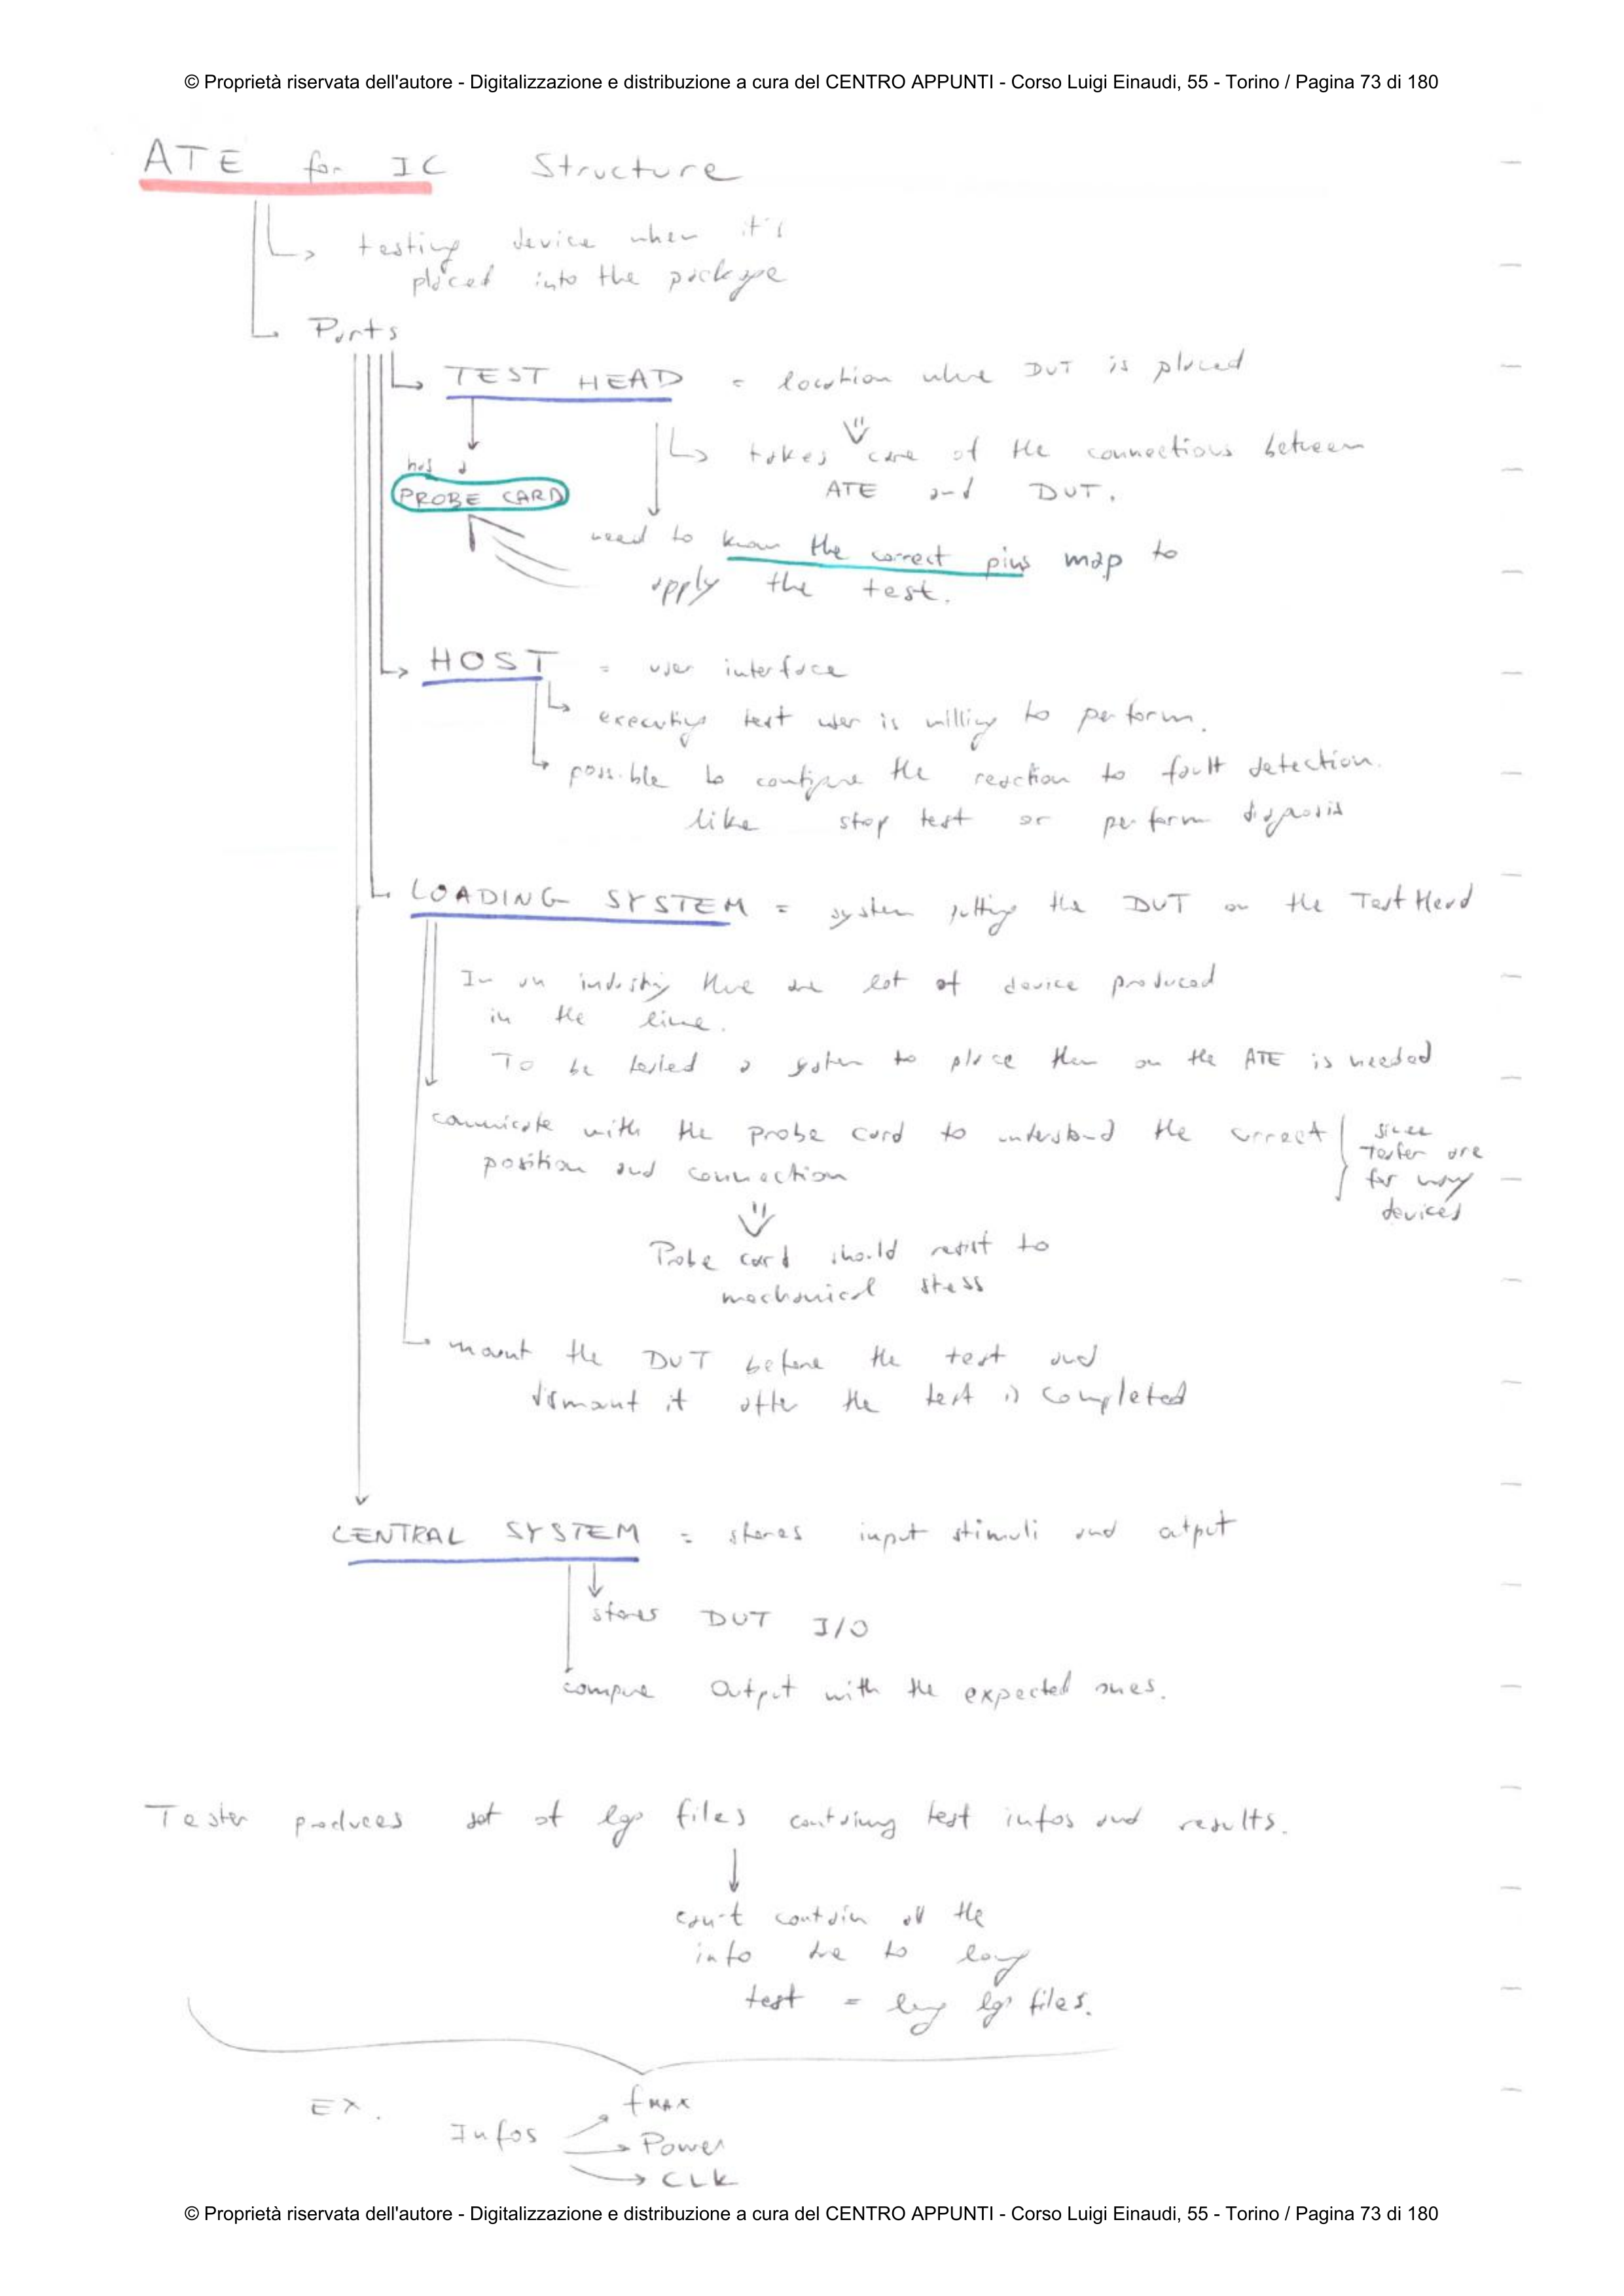 © Proprietà riservata dell'autore - Digitalizzazione e distribuzione a cura del CENTRO APPUNTI - Corso Luigi Einaudi, 55 - Torino / Pagina 73 di 180
ATE for IC Structure
testing device when it's
placed into the package
Parts
TEST HEAD = location where DUT is placed
takes care of the connections between
ATE and DUT.
has a
PROBE CARD
need to know the correct pins map to
apply the test.
HOST = user interface
executing test user is willing to perform.
possible to configure the reaction to fault detection.
like stop test or perform diagnosis
LOADING SYSTEM = system putting the DUT on the Test Head
In an industry there are lot of device produced
in the line.
To be tested a system to place them on the ATE is needed
comunicate with the probe card to understand the correct
position and connection
since
Tester are
for many
devices
Probe card should resist to
mechanical stress
mount the DUT before the test and
dismount it after the test is completed
CENTRAL SYSTEM = stores input stimuli and output
stores DUT I/O
compare Output with the expected ones.
Tester produces set of log files containing test infos and results.
can't contain all the
info due to long
test = long log files.
EX.
Infos
fMAX
Power
CLK
© Proprietà riservata dell'autore - Digitalizzazione e distribuzione a cura del CENTRO APPUNTI - Corso Luigi Einaudi, 55 - Torino / Pagina 73 di 180